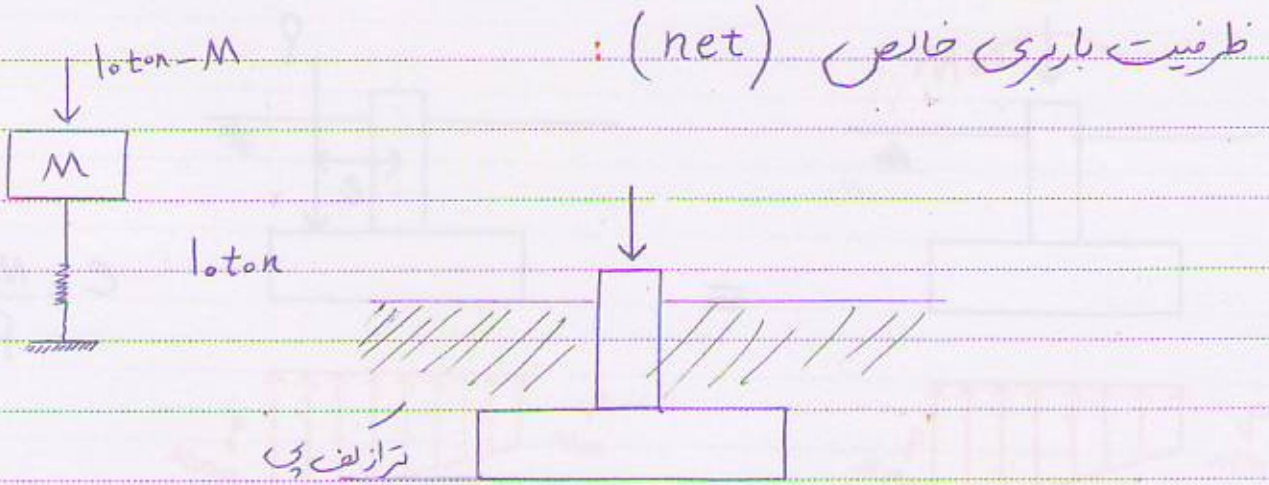 ظرفیت باربری خالص (net) :
10ton-M
M
10ton
تراز کف پی